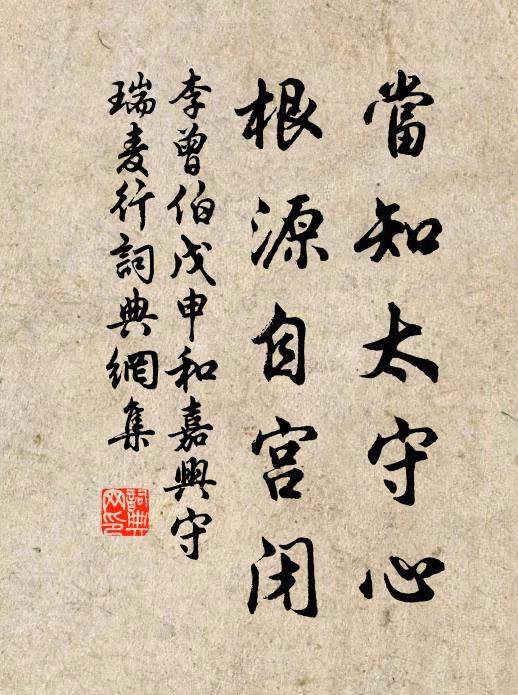 當知太守心
根源自宫閉
李曾伯戊申和嘉興守
瑞麦行詞典網集
詞典網印